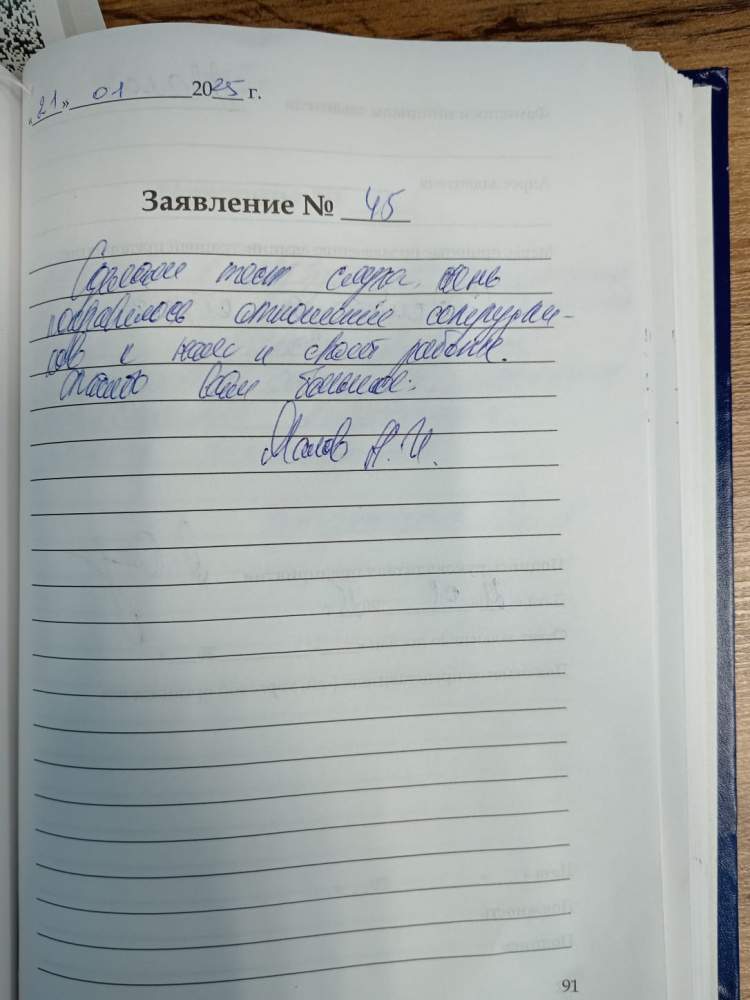 «21» 01 2025 г.
Заявление № 45
тест слуха, очень
понравилось отношение сотрудни-
ков к нам и своей работе.
Спасибо Вам большое.
Малов А.И.
91